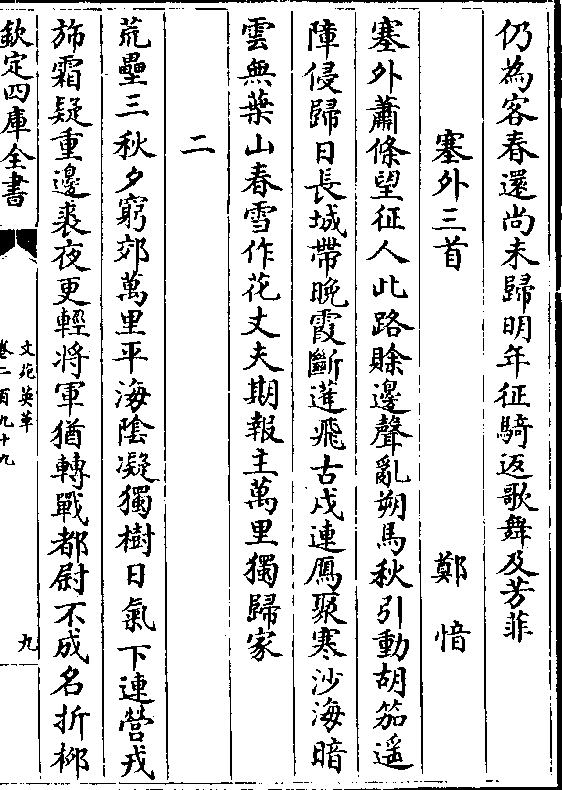 仍為客春還尚未歸明年征騎返歌舞及芳菲
塞外三首 鄭愔
塞外蕭條望征人此路賒邊聲亂朔馬秋引動胡笳遥
障侵歸日長城帶晚霞斷蓬飛古戍連鴈聚寒沙海暗
雲無葉山春雪作花丈夫期報主萬里獨歸家
二
荒壘三秋夕窮郊萬里平海陰凝獨樹日氣下連營戎
斾霜疑重邊裘夜更輕將軍猶轉戰都尉不成名折栁
欽定四庫全書
文苑英華
卷二百九十九
九